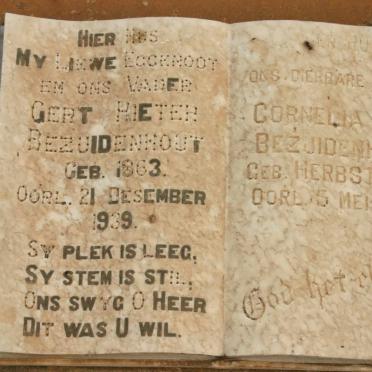 HIER RUS
MY LIEWE EGGENOOT
EN ONS VADER
GERT PIETER
BEZUIDENHOUT
GEB. 1863.
OORL. 21 DESEMBER
1939.
SY PLEK IS LEEG,
SY STEM IS STIL,
ONS SWYG O HEER
DIT WAS U WIL.
ONS DIERBARE
CORNELIA
BEZUIDENH
GEB. HERBST
OORL. 5 MEI
God het